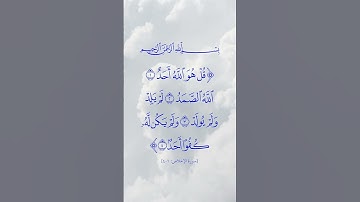 بِسْمِ ٱللَّهِ ٱلرَّحْمَٰنِ ٱلرَّحِيمِ
﴿قُلْ هُوَ ٱللَّهُ أَحَدٌ ۝١
ٱللَّهُ ٱلصَّمَدُ ۝٢ لَمْ يَلِدْ
وَلَمْ يُولَدْ ۝٣ وَلَمْ يَكُن لَّهُۥ
كُفُوًا أَحَدٌۢ ۝٤﴾
[سورة الإخلاص: ١-٤]